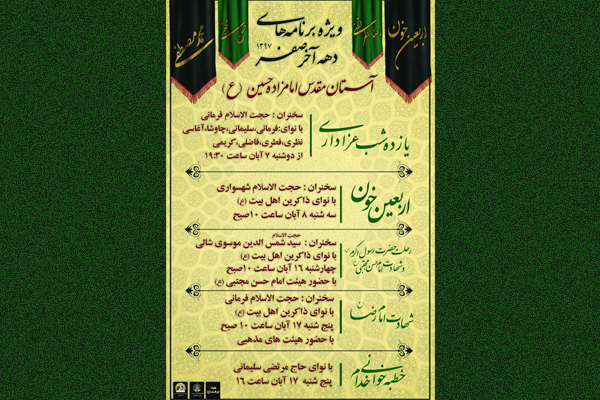 اربعین خون
ویژه برنامه های
دهه آخر صفر ۱۳۹۷
آستان مقدس امامزاده حسین (ع)
یازده شب عزاداری
سخنران : حجت الاسلام فرمانی
با نوای:فرمانی،سلیمانی،چاوشا،آغاسی
نظری،فطری،فاضلی،کریمی
از دوشنبه ۷ آبان ساعت ۱۹:۳۰
اربعین خون
سخنران : حجت الاسلام شهسواری
با نوای ذاکرین اهل بیت (ع)
سه شنبه ۸ آبان ساعت ۱۰صبح
رحلت حضرت رسول اکرم
و شهادت امام حسن مجتبی
حجت الاسلام
سخنران : سید شمس الدین موسوی شالی
با نوای ذاکرین اهل بیت (ع)
چهارشنبه ۱۶ آبان ساعت ۱۰صبح
با حضور هیئت امام حسن مجتبی (ع)
شهادت امام رضا
سخنران : حجت الاسلام فرمانی
با نوای ذاکرین اهل بیت (ع)
پنج شنبه ۱۷ آبان ساعت ۱۰ صبح
با حضور هیئت های مذهبی
خطبه خوانی خدام
با نوای حاج مرتضی سلیمانی
پنج شنبه ۱۷ آبان ساعت ۱۶